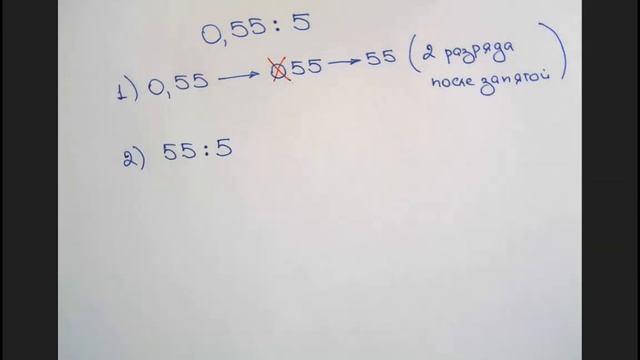 0,55 : 5
1) 0,55 → 055 → 55 (2 разряда
после запятой)
2) 55 : 5